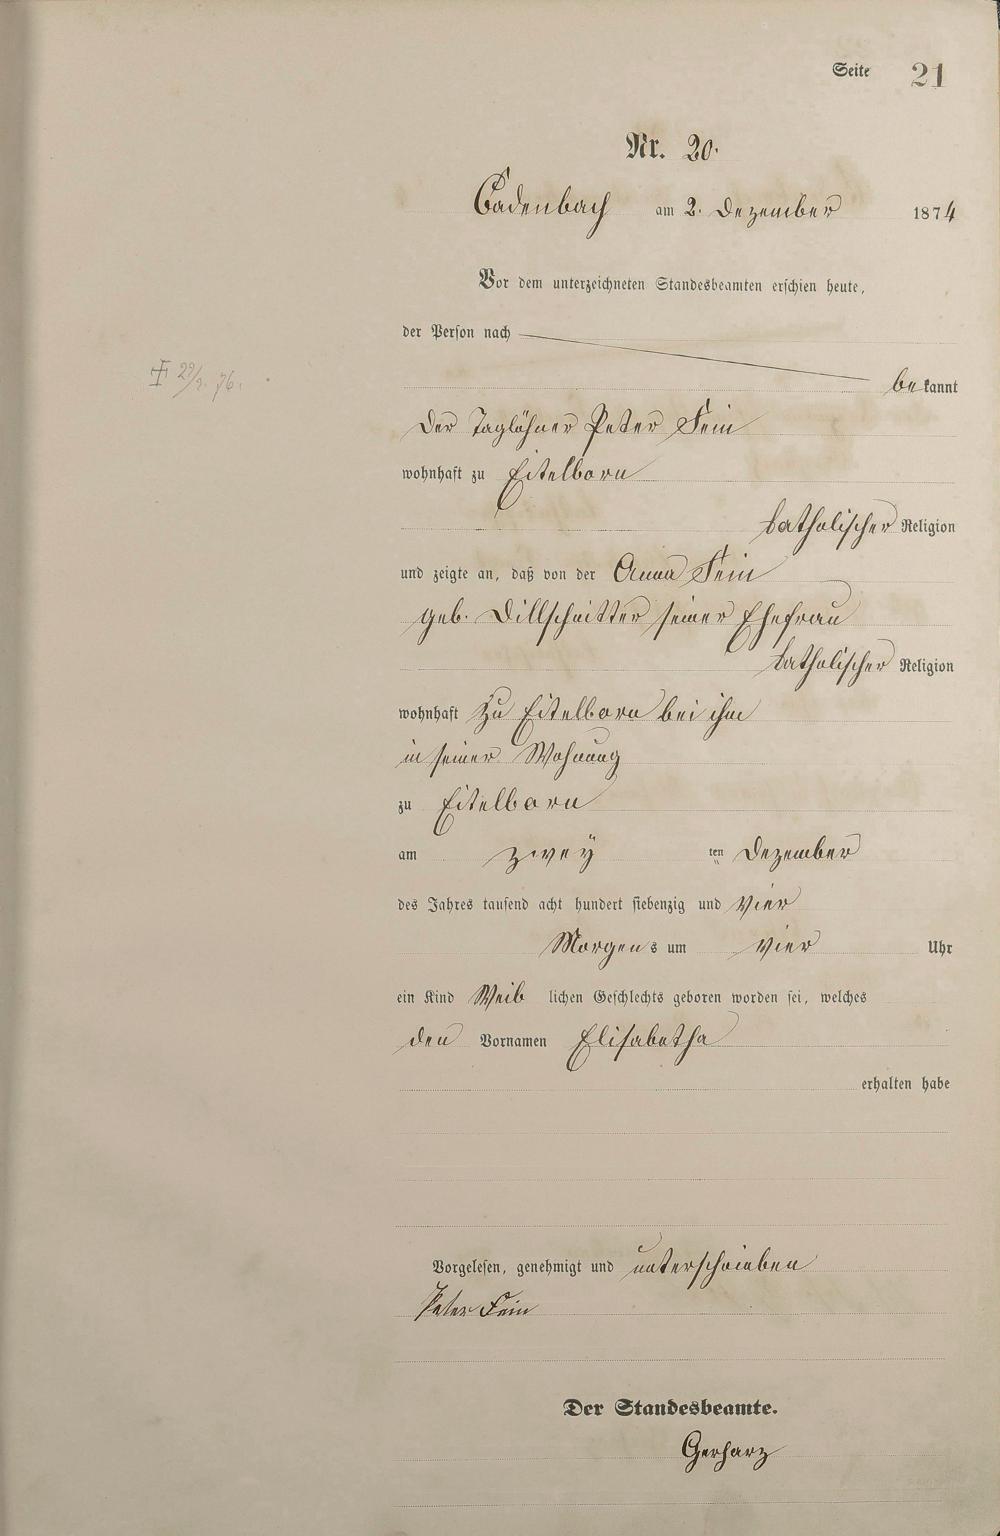 Seite 21
Nr. 20.
Cadenbach am 2. Dezember 1874
Vor dem unterzeichneten Standesbeamten erschien heute,
der Person nach
bekannt
der Taglöhner Peter Fein
wohnhaft zu Eitelborn
katholischer Religion
und zeigte an, daß von der Anna Fein
geb. Dillschnitter seiner Ehefrau
katholischer Religion
wohnhaft zu Eitelborn bei ihm
in seiner Wohnung
zu Eitelborn
am zwey ten Dezember
des Jahres tausend acht hundert siebenzig und vier
Morgens um vier Uhr
ein Kind Weiblichen Geschlechts geboren worden sei, welches
den Vornamen Elisabetha
erhalten habe
Vorgelesen, genehmigt und unterschrieben
Peter Fein
Der Standesbeamte.
Gerharz